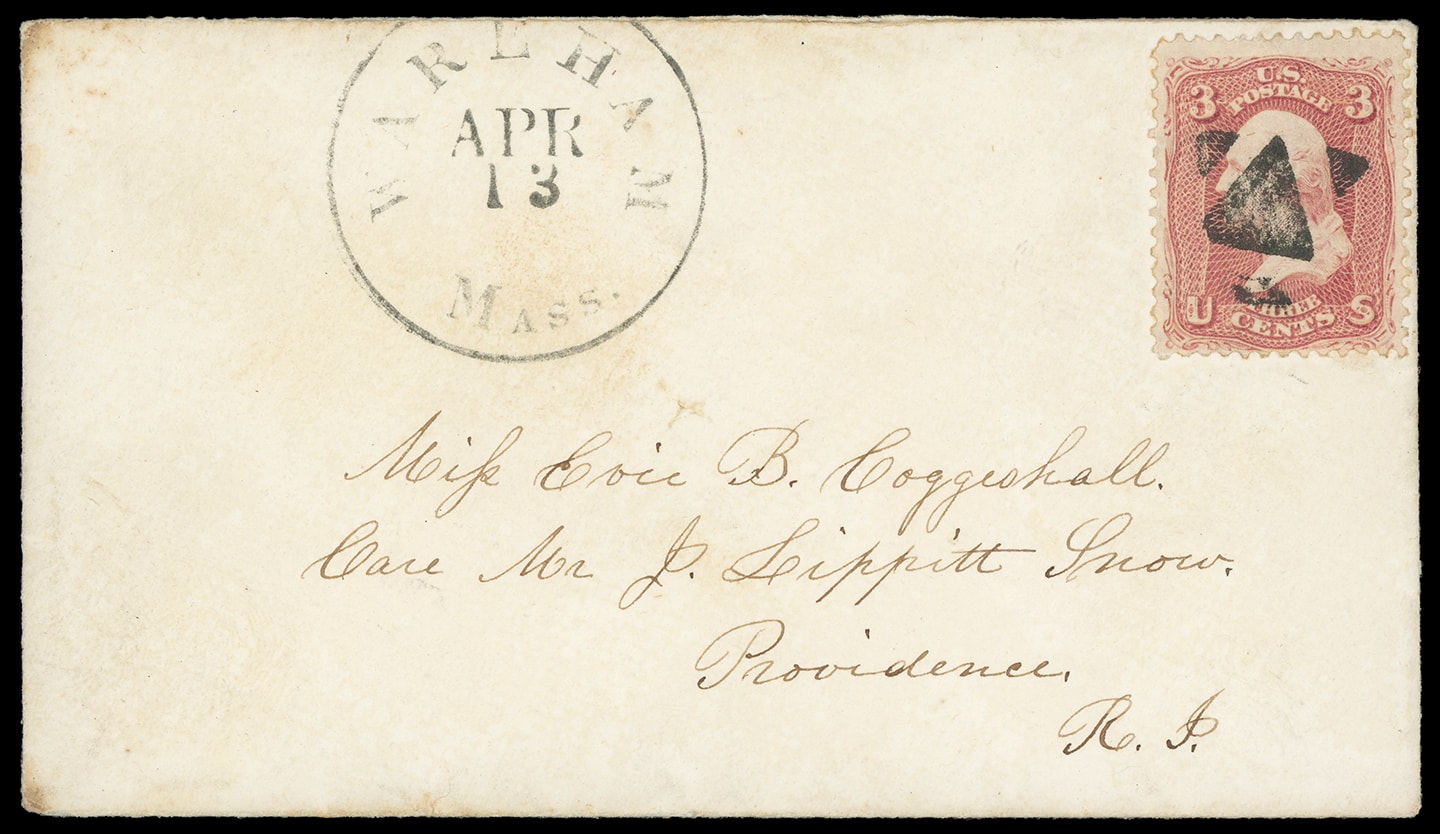 WAREHAM
APR
13
MASS.
U.S.
POSTAGE
3 3
U S
THREE
CENTS
Miſs Evie B. Coggeshall.
Care Mr J. Lippitt Snow.
Providence.
R. I.